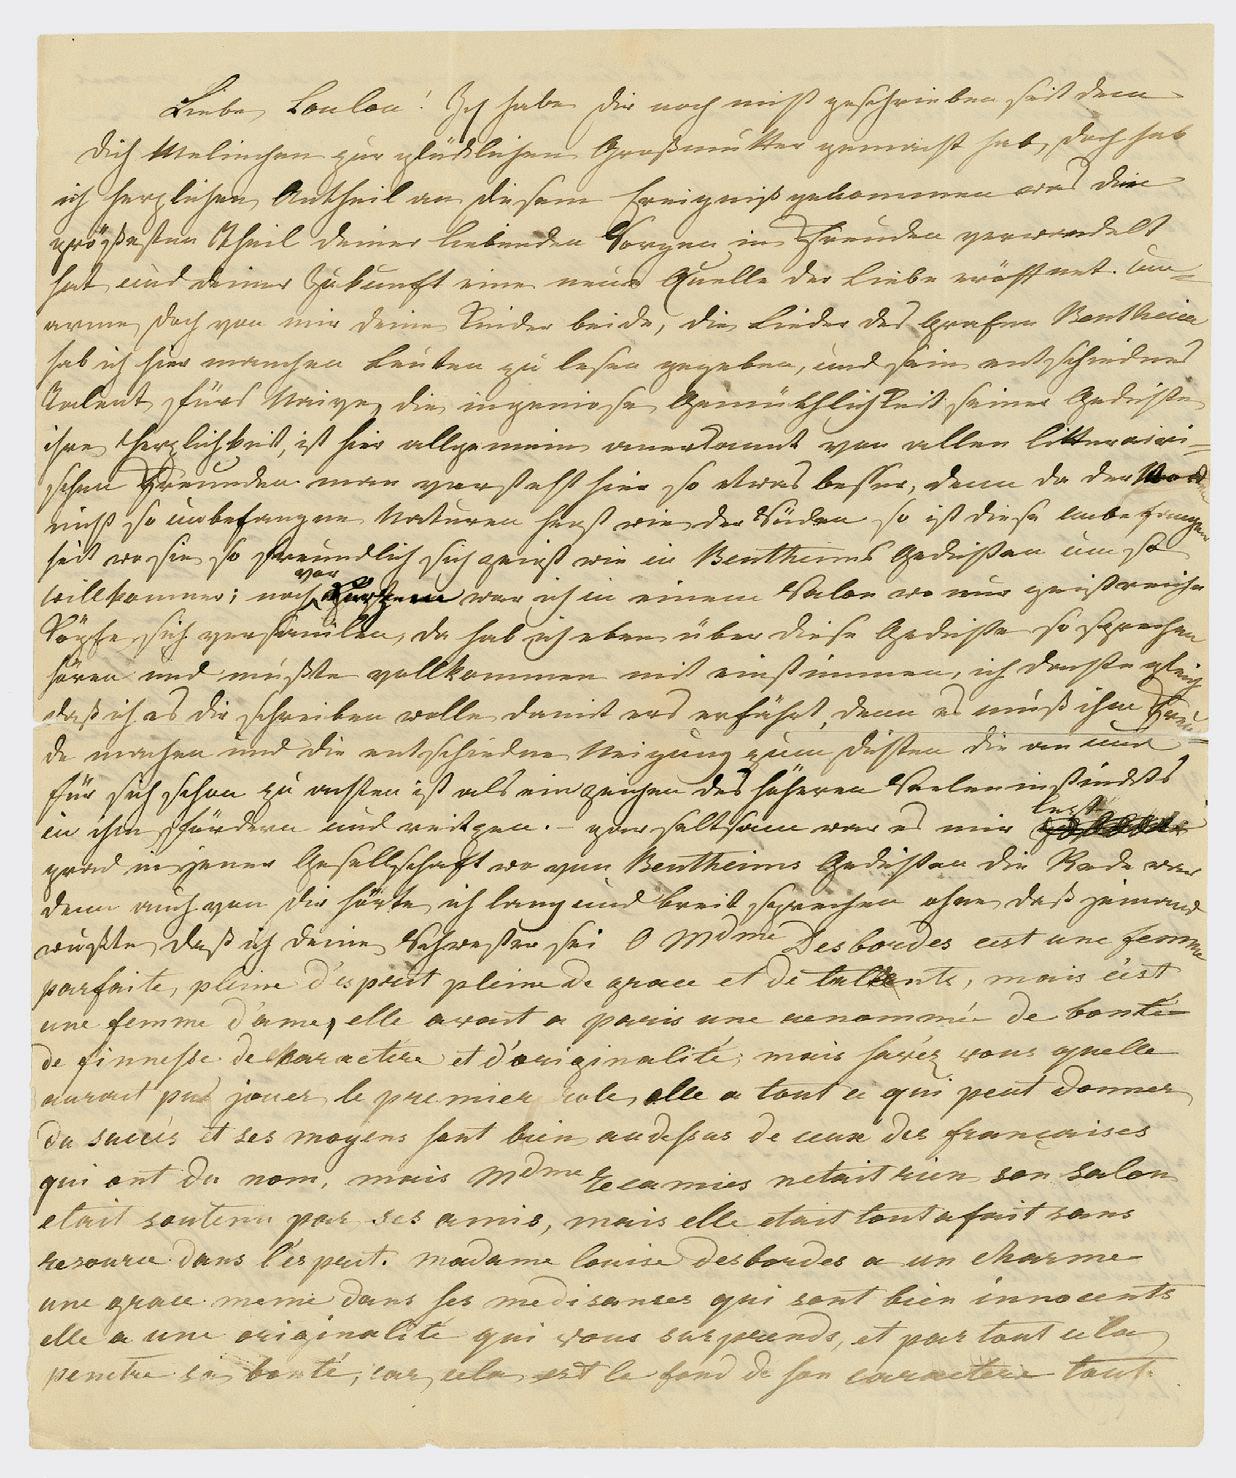 Liebe Loulou! Ich habe dir noch nicht geschrieben seit dem
dich Melinchen zur glücklichen Großmutter gemacht hat, doch hab
ich herzlichen Antheil an diesem Ereigniß genommen was den
größesten Theil deiner liebenden Sorgen in Freuden verwandelt
hat und deiner Zukunft eine neue Quelle der Liebe eröffnet. Um=
arme doch von mir deine Kinder beide, die Lieder des Grafen Bentheim
hab ich hier manchen Leuten zu lesen gegeben, und sein entschiednes
Talent fürs Naive, die ingeniose Gemüthlichkeit seiner Gedichte
ihre Herzlichkeit, ist hier allgemein anerkannt von allen litterairi=
schen Freunden. man versteht hier so etwas besser, denn da der Norden
nicht so unbefangne Naturen hegt wie der Süden so ist diese Unbefangen
heit wo sie so freundlich sich zeigt wie in Bentheims Gedichten um so
willkommner; noch vor Kurzem war ich in einem Salon wo nur geistreiche
Köpfe sich versamlen, da hab ich eben über diese Gedichte so sprechen
hören und mußte vollkommen mit einstimmen, ich dachte gleich
daß ich es dir schreiben wolle damit ers erfährt, denn es muß ihm Freu=
de machen und die entschiedne Neigung zum Dichten die an und
für sich schon zu achten ist als ein Zeichen des höheren Seeleninstinckts
in ihm fördern und reitzen. – gar seltsam war es mir
grad in jener Gesellschaft wo von Bentheims Gedichten die Rede war
denn auch von dir hörte ich lang und breit sprechen ohne daß jemand
wußte daß ich deine Schwester sei O Mdme Desbordes cest une femme
parfaite, pleine d'esprit pleine de grace et de talents, mais c'est
une femme d'ame, elle avait a paris une renommée de bonté
de finnesse de karactere et d'originalité, mais savéz vous quelle
aurait pu jouer le premier role, elle a tout ce qui peut donner
du succés et ses moyens sont bien audessus de ceux des francaises
qui ont du nom, mais Mdme Recamier netait rien son salon
etait soutenu par ses amis, mais elle etait tout a fait sans
resource dans l'ésprit. madame louise desbordes a un charme
une grace meme dans ses medisances qui sont bien innocents
elle a une originalité qui vous surprends, et par tout cela
penetre sa bonté, car cela est le fond de son caractere tout